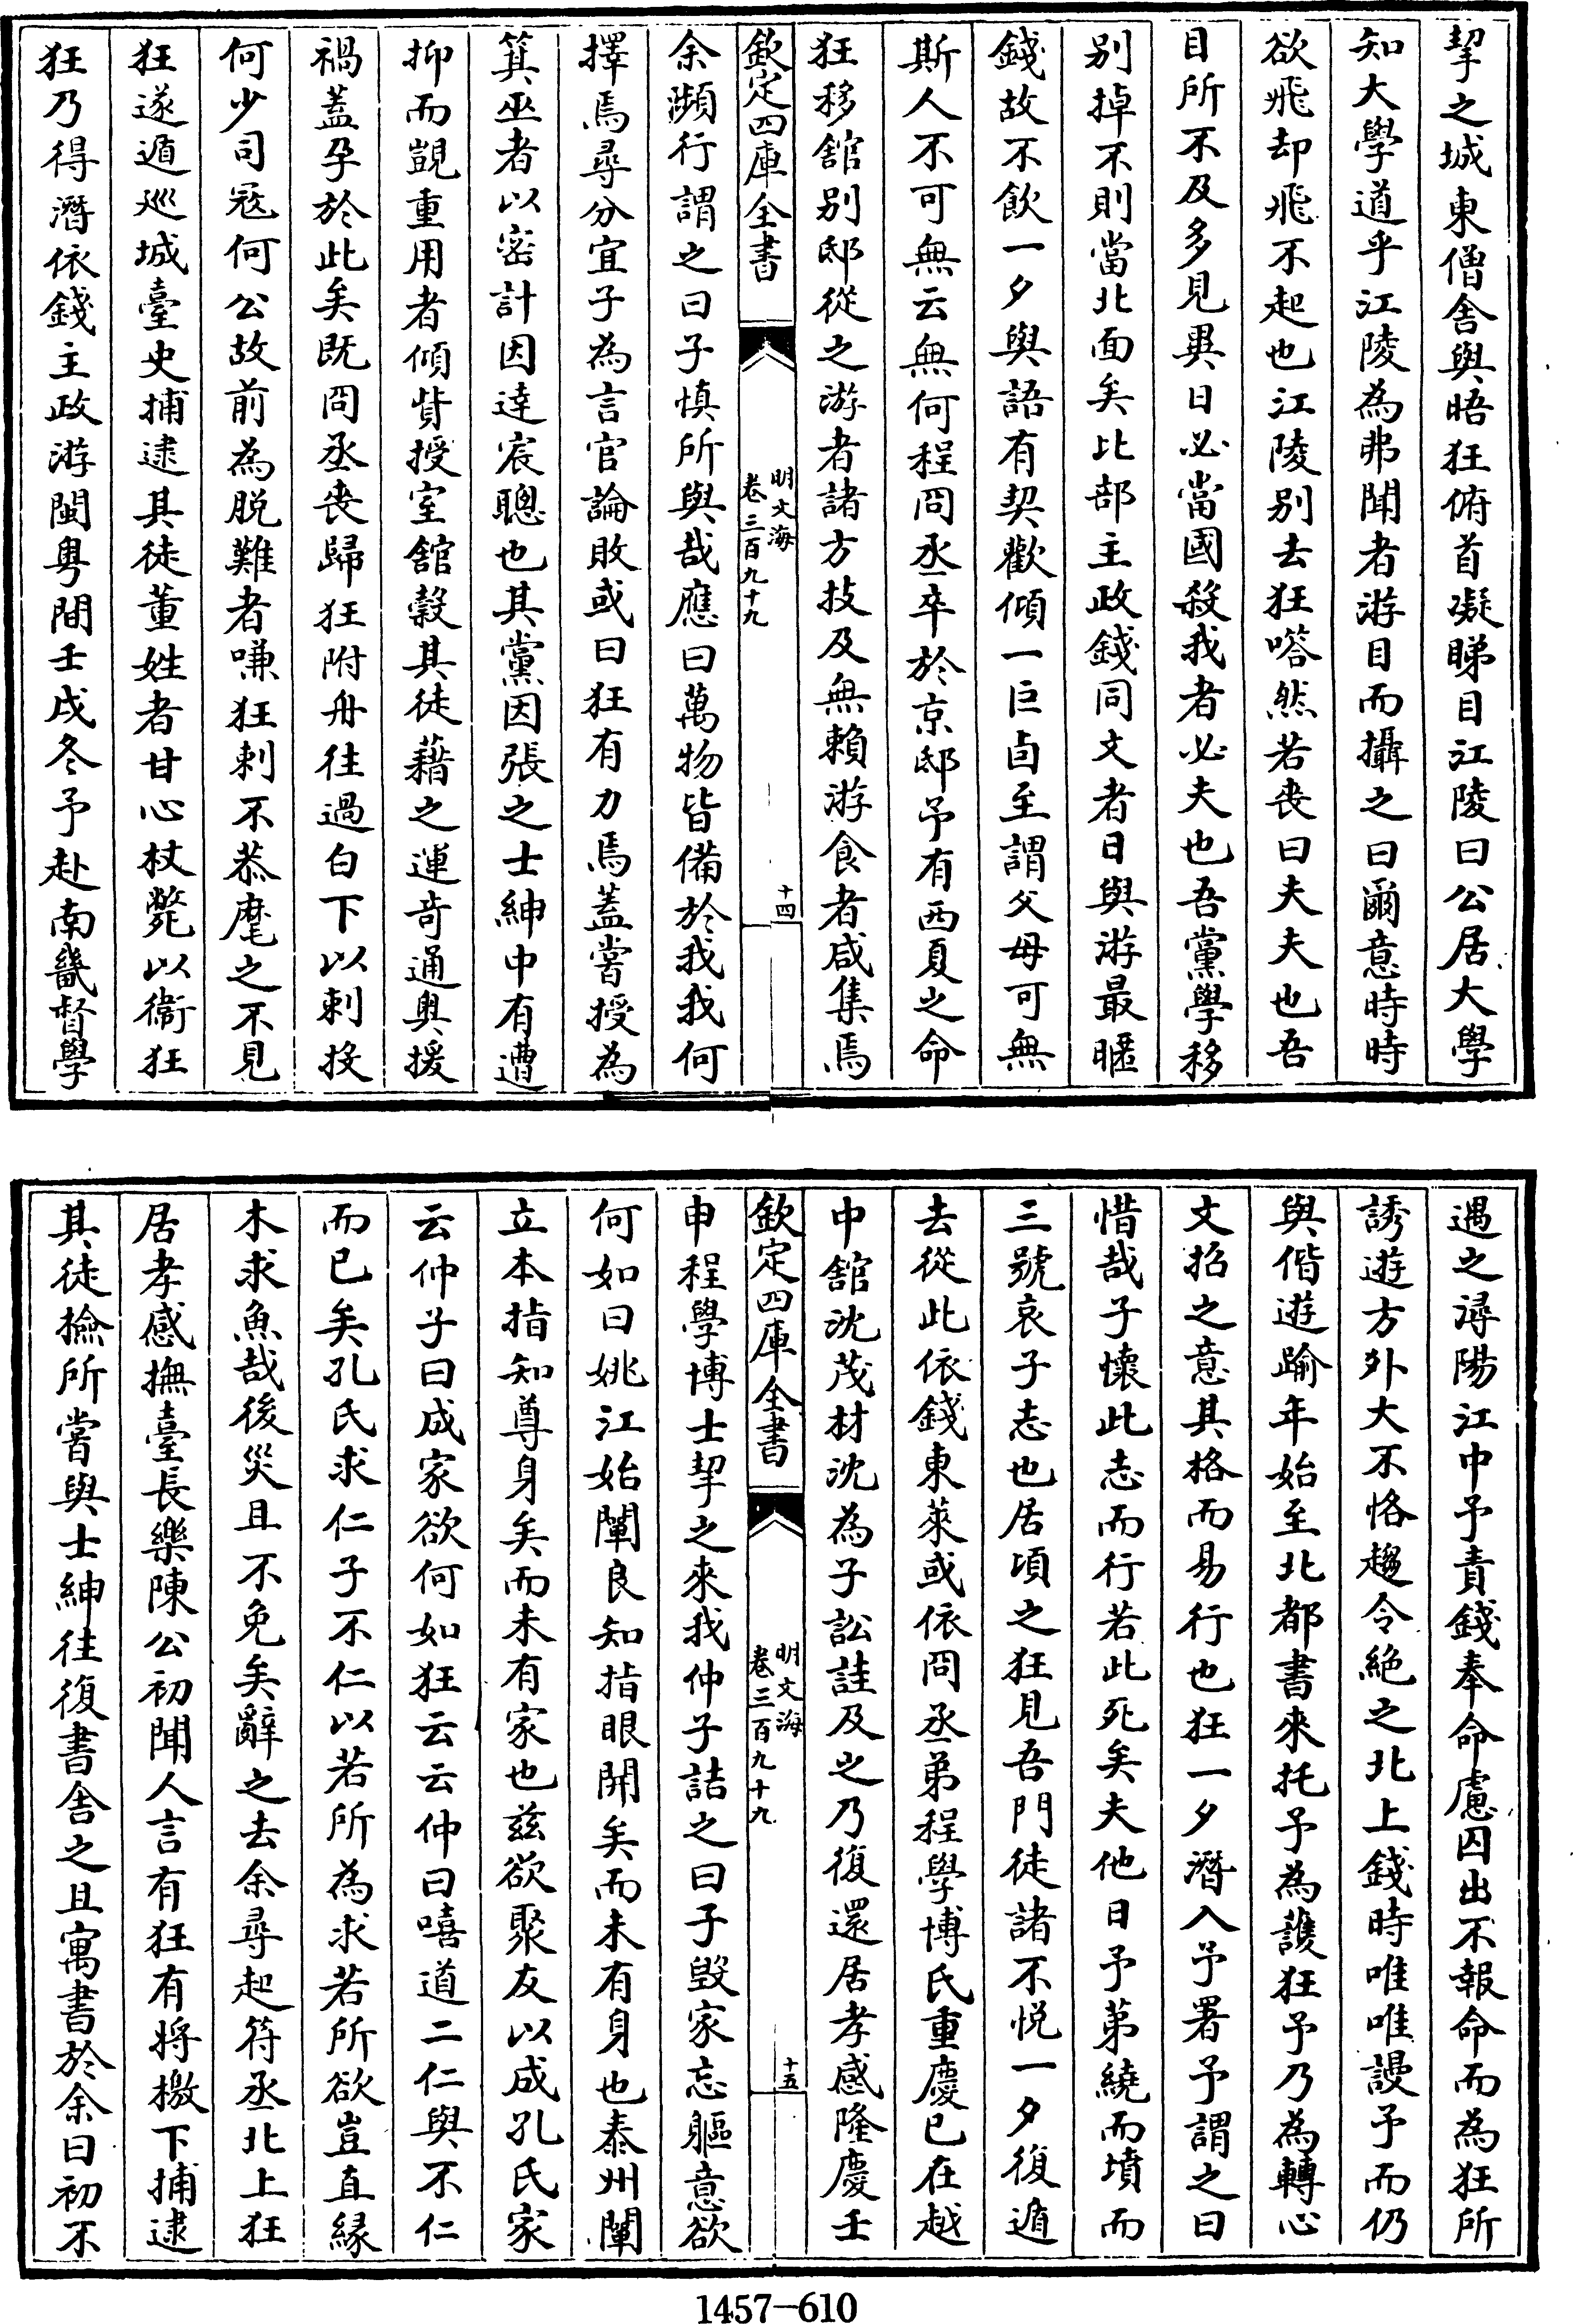 挈之城東僧舍與晤狂俯首凝睇目江陵曰公居大學
知大學道乎江陵為弗聞者游目而攝之曰爾意時時
欲飛却飛不起也江陵别去狂嗒然若喪曰夫夫也吾
目所不及多見異日必當國殺我者必夫也吾黨學移
别掉不則當北面矣比部主政錢同文者日與游最暱
錢故不飲一夕與語有契歡傾一巨卣至謂父母可無
斯人不可無云無何程冏丞卒於京邸予有西夏之命
狂移舘别邸從之游者諸方技及無賴游食者咸集焉
欽定四庫全書
明文海
卷三百九十九
十四
余瀕行謂之曰子慎所與哉應曰萬物皆備於我我何
擇焉尋分宜子為言官論敗或曰狂有力焉蓋嘗授為
箕巫者以密計因達宸聰也其黨因張之士紳中有遭
抑而覬重用者傾貲授室舘穀其徒藉之運奇通奥援
禍蓋孕於此矣既冏丞喪歸狂附舟往過白下以刺投
何少司寇何公故前為脱難者嗛狂刺不恭麾之不見
狂遂遁巡城臺史捕逮其徒董姓者甘心杖斃以衞狂
狂乃得潛依錢主政游閩粤間壬戌冬予赴南畿督學
遇之潯陽江中予責錢奉命慮囚出不報命而為狂所
誘遊方外大不恪趨令絶之北上錢時唯唯謾予而仍
與偕遊踰年始至北都書來托予為護狂予乃為轉心
文招之意其格而易行也狂一夕潛入予署予謂之曰
惜哉子懷此志而行若此死矣夫他日予弟繞而墳而
三號哀子志也居頃之狂見吾門徒諸不悦一夕復遁
去從此依錢東萊或依冏丞弟程學博氏重慶已在越
中舘沈茂材沈為子訟詿及之乃復還居孝感隆慶壬
欽定四庫全書
明文海
卷三百九十九
十五
申程學博士挈之來我仲子詰之曰子毁家忘軀意欲
何如曰姚江始闡良知指眼開矣而未有身也泰州闡
立本指知尊身矣而未有家也兹欲聚友以成孔氏家
云仲子曰成家欲何如狂云云仲曰嘻道二仁與不仁
而已矣孔氏求仁子不仁以若所為求若所欲豈直緣
木求魚哉後災且不免矣辭之去余尋起符丞北上狂
居孝感撫臺長樂陳公初聞人言有狂有將檄下捕逮
其徒撿所嘗與士紳往復書舍之且寓書於余曰初不
1457—610